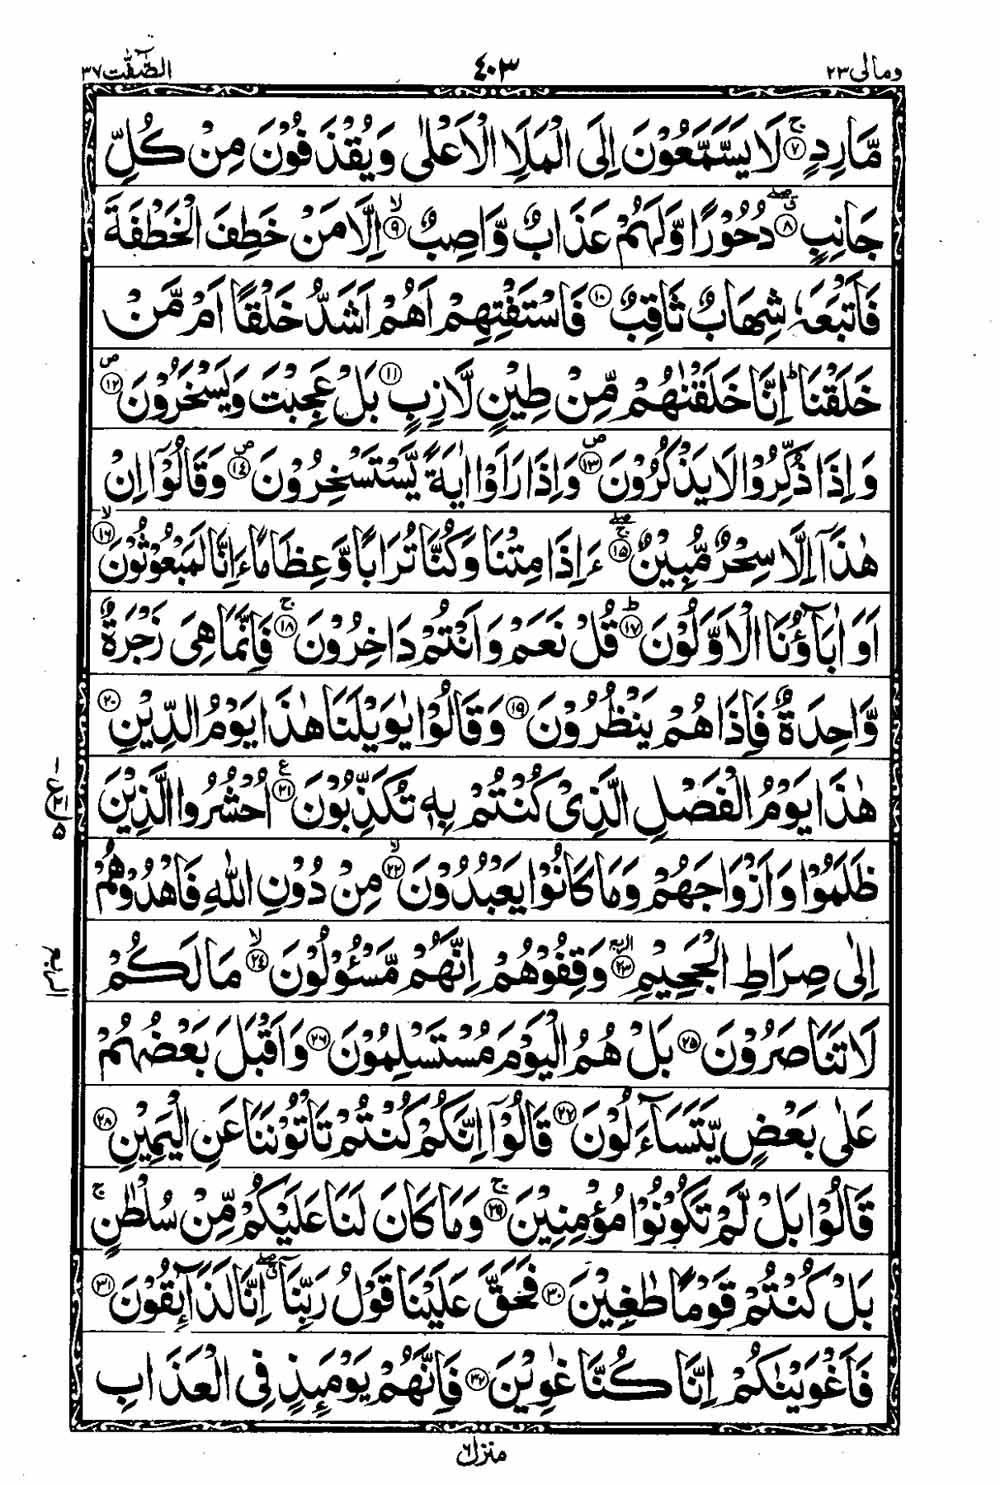 ومالی ٢٣ ٤٠٣ الصّٰٓفّٰت ٣٧
مَّارِدٍ ۚ‏﴿٧﴾ لَا يَسَّمَّعُوْنَ اِلَى الْمَلَاِ الْاَعْلٰى وَيُقْذَفُوْنَ مِنْ كُلِّ
جَانِبٍ ۖۗ‏﴿٨﴾ دُحُوْرًا وَّلَهُمْ عَذَابٌ وَّاصِبٌ ۙ‏﴿٩﴾ اِلَّا مَنْ خَطِفَ الْخَطْفَةَ
فَاَتْبَعَهٗ شِهَابٌ ثَاقِبٌ ﴿١٠﴾ فَاسْتَفْتِهِمْ اَهُمْ اَشَدُّ خَلْقًا اَمْ مَّنْ
خَلَقْنَا ؕ اِنَّا خَلَقْنٰهُمْ مِّنْ طِيْنٍ لَّازِبٍ ﴿١١﴾ بَلْ عَجِبْتَ وَيَسْخَرُوْنَ ﴿١٢﴾ ص
وَاِذَا ذُكِّرُوْا لَا يَذْكُرُوْنَ ﴿١٣﴾ ص وَاِذَا رَاَوْا اٰيَةً يَّسْتَسْخِرُوْنَ ﴿١٤﴾ ص وَقَالُوْٓا اِنْ
هٰذَآ اِلَّا سِحْرٌ مُّبِيْنٌ ۖۚ‏﴿١٥﴾ ءَاِذَا مِتْنَا وَكُنَّا تُرَابًا وَّعِظَامًا ءَاِنَّا لَمَبْعُوْثُوْنَ ۙ‏﴿١٦﴾
اَوَاٰبَآؤُنَا الْاَوَّلُوْنَ ؕ‏﴿١٧﴾ قُلْ نَعَمْ وَاَنْتُمْ دَاخِرُوْنَ ۚ‏﴿١٨﴾ فَاِنَّمَا هِىَ زَجْرَةٌ
وَّاحِدَةٌ فَاِذَا هُمْ يَنْظُرُوْنَ ﴿١٩﴾ وَقَالُوْا يٰوَيْلَنَا هٰذَا يَوْمُ الدِّيْنِ ﴿٢٠﴾
هٰذَا يَوْمُ الْفَصْلِ الَّذِىْ كُنْتُمْ بِهٖ تُكَذِّبُوْنَ ﴿٢١﴾ ع اُحْشُرُوا الَّذِيْنَ
ظَلَمُوْا وَاَزْوَاجَهُمْ وَمَا كَانُوْا يَعْبُدُوْنَ ۙ‏﴿٢٢﴾ مِنْ دُوْنِ اللّٰهِ فَاهْدُوْهُمْ
اِلٰى صِرَاطِ الْجَحِيْمِ ﴿٢٣﴾ وَقِفُوْهُمْ اِنَّهُمْ مَّسْـُٔوْلُوْنَ ۙ‏﴿٢٤﴾ مَا لَكُمْ
لَا تَنَاصَرُوْنَ ﴿٢٥﴾ بَلْ هُمُ الْيَوْمَ مُسْتَسْلِمُوْنَ ﴿٢٦﴾ وَاَقْبَلَ بَعْضُهُمْ
عَلٰى بَعْضٍ يَّتَسَآءَلُوْنَ ﴿٢٧﴾ قَالُوْٓا اِنَّكُمْ كُنْتُمْ تَاْتُوْنَنَا عَنِ الْيَمِيْنِ ﴿٢٨﴾
قَالُوْا بَلْ لَّمْ تَكُوْنُوْا مُؤْمِنِيْنَ ۚ‏﴿٢٩﴾ وَمَا كَانَ لَنَا عَلَيْكُمْ مِّنْ سُلْطٰنٍ ۚ
بَلْ كُنْتُمْ قَوْمًا طٰغِيْنَ ﴿٣٠﴾ فَحَقَّ عَلَيْنَا قَوْلُ رَبِّنَآ ۖۗ اِنَّا لَذَآئِقُوْنَ ﴿٣١﴾
فَاَغْوَيْنٰكُمْ اِنَّا كُنَّا غٰوِيْنَ ﴿٣٢﴾ فَاِنَّهُمْ يَوْمَئِذٍ فِى الْعَذَابِ
الربع
منزل ٦